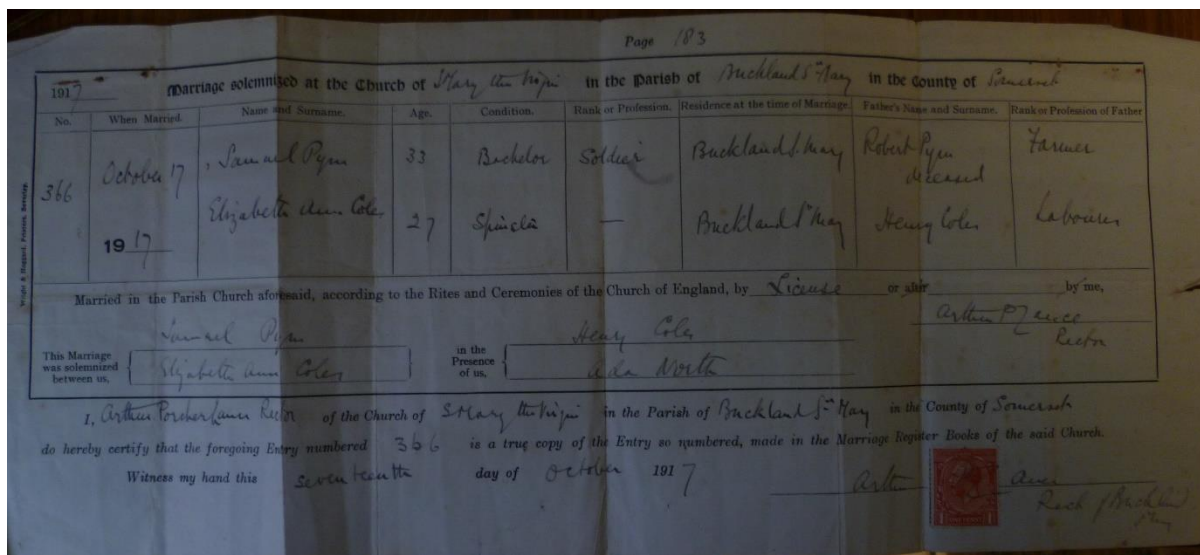 Page 183
1917 Marriage solemnized at the Church of S Mary the Virgin in the Parish of Buckland St Mary in the County of Somerset
No. When Married. Name and Surname. Age. Condition. Rank or Profession. Residence at the time of Marriage. Father's Name and Surname. Rank or Profession of Father
366 October 17 1917 Samuel Pym 33 Bachelor Soldier Buckland St Mary Robert Pym deceased Farmer
Elizabeth Ann Coles 27 Spinster — Buckland St Mary Henry Coles Labourer
Married in the Parish Church aforesaid, according to the Rites and Ceremonies of the Church of England, by License or after by me,
Arthur P Lance
Rector
This Marriage was solemnized between us, Samuel Pym Elizabeth Ann Coles in the Presence of us, Henry Coles Ada North
I, Arthur Porcher Lance Rector of the Church of S Mary the Virgin in the Parish of Buckland St Mary in the County of Somerset
do hereby certify that the foregoing Entry numbered 366 is a true copy of the Entry so numbered, made in the Marriage Register Books of the said Church.
Witness my hand this seventeenth day of October 1917
Rect of Buckland